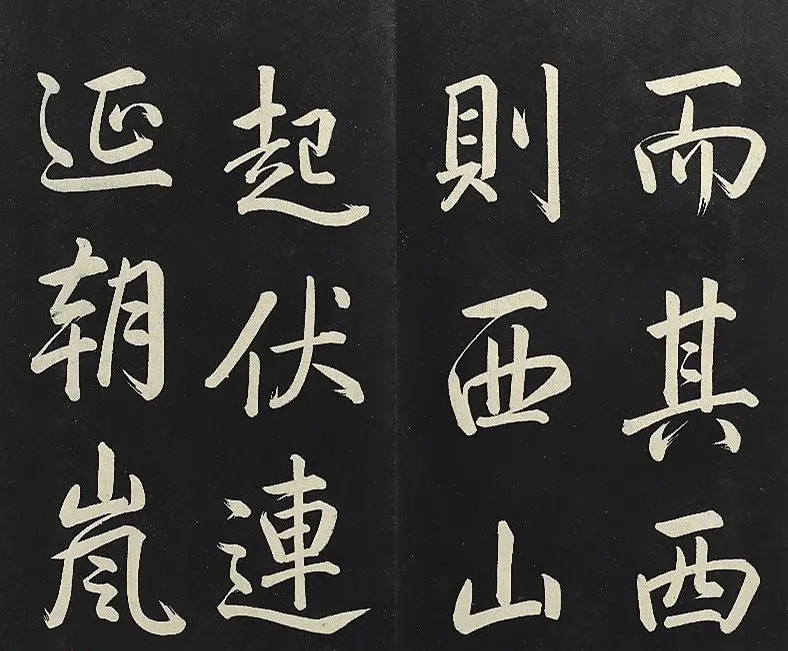 而其西
則西山
起伏連
延朝嵐